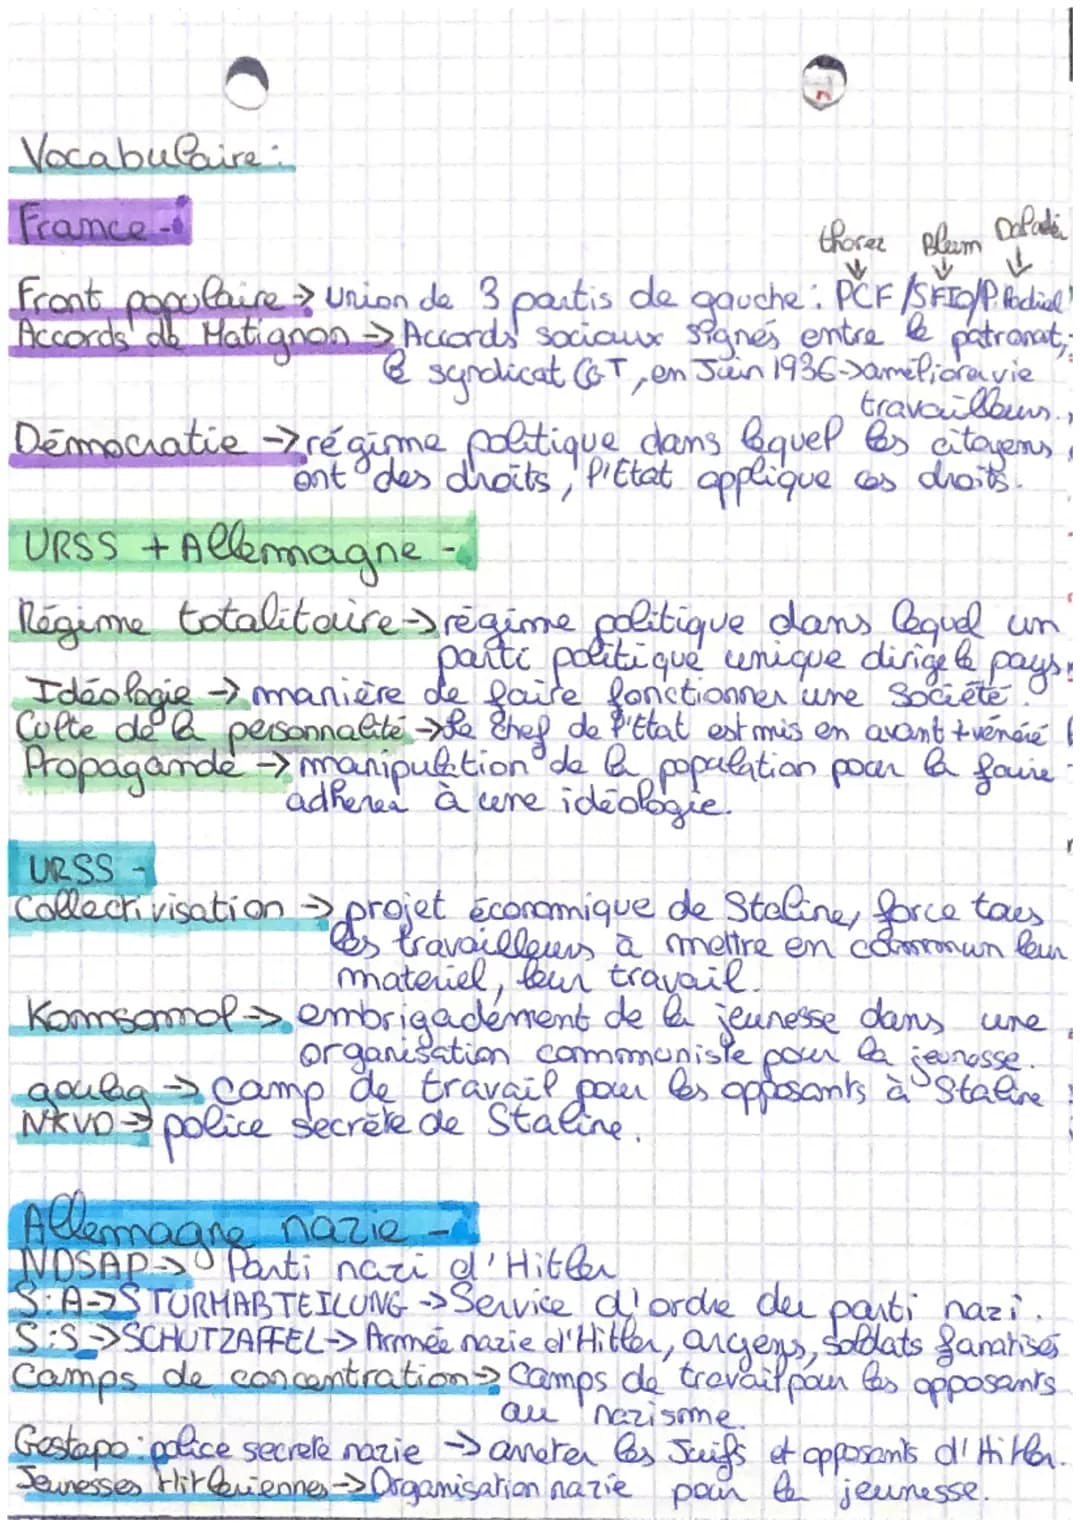 Vocabulaire:
France -
thorez Blum Daladier
Front populaire → Union de 3 partis de gauche : PCF /SFIO/P. Radical
Accords de Matignon → Accords sociaux signés entre le patronat,
le syndicat CGT, en Juin 1936 → améliora vie
travailleurs.
Démocratie → régime politique dans lequel les citoyens
ont des droits, l'Etat applique ces droits.
URSS + Allemagne -
Régime totalitaire → régime politique dans lequel un
parti politique unique dirige le pays.
Idéologie → manière de faire fonctionner une société.
Culte de la personnalité → le chef de l'Etat est mis en avant + vénéré
Propagande → manipulation de la population pour la faire
adherer à une idéologie.
URSS -
Collectrivisation → projet économique de Staline, force tous
les travailleurs à mettre en commun leur
materiel, leur travail.
Komsomol → embrigadement de la jeunesse dans une
organisation communiste pour la jeunesse.
goulag → camp de travail pour les opposants à Staline
NKVD → police secrète de Staline.
Allemagne nazie -
NDSAP → Parti nazi d'Hitler
S.A → STURMABTEILUNG → Service d'ordre du parti nazi.
S.S → SCHUTZAFFEL → Armée nazie d'Hitler, aryens, soldats fanatisés
Camps de concentration → Camps de travail pour les opposants
au nazisme.
Gestapo : police secrete nazie → arreter les Juifs et opposants d'Hitler.
Jeunesses Hitleriennes → Organisation nazie pour la jeunesse.